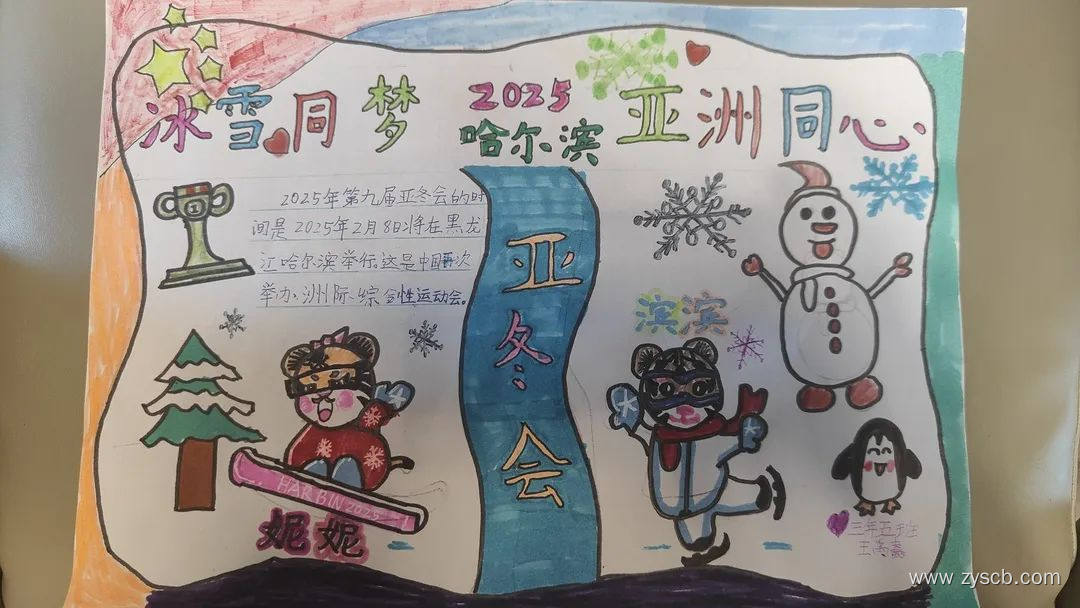 冰雪同梦 2025 亚洲同心
哈尔滨
2025年第九届亚冬会的时
间是2025年2月8日将在黑龙
江哈尔滨举行。这是中国再次
举办洲际综合性运动会。
亚冬会
滨滨
1
HARBIN 2025
妮妮
三年五班
www.zyscb.com